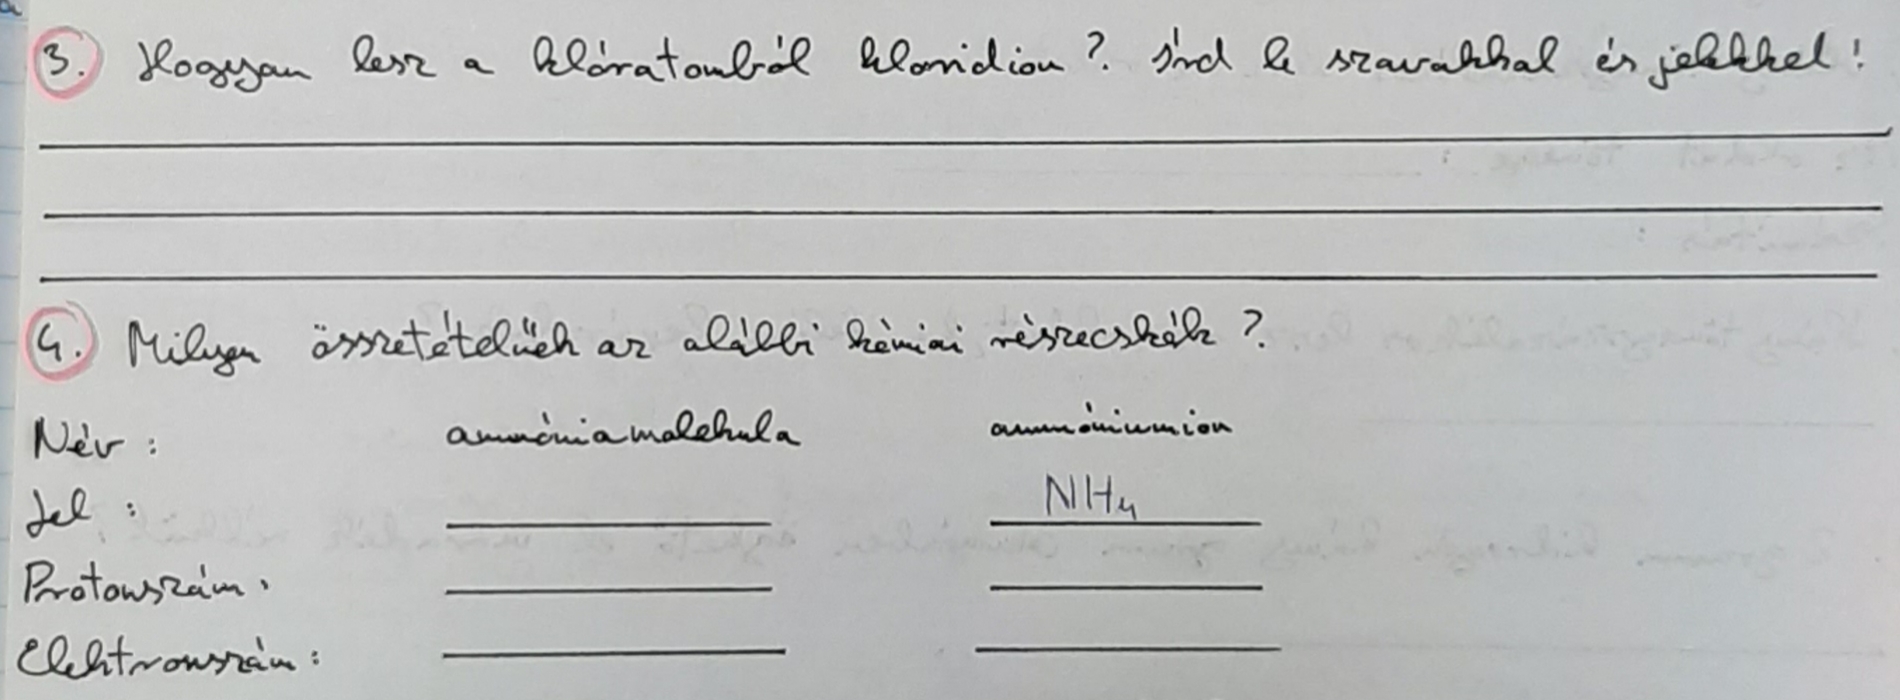 3. Hogyan lesz a klóratomból kloridion? Írd le szavakkal és jelekkel!
4. Milyen összetételűek az alábbi kémiai részecskék?
Név: ammóniamolekula ammóniumion
Jel: NH4
Protonszám:
Elektronszám: